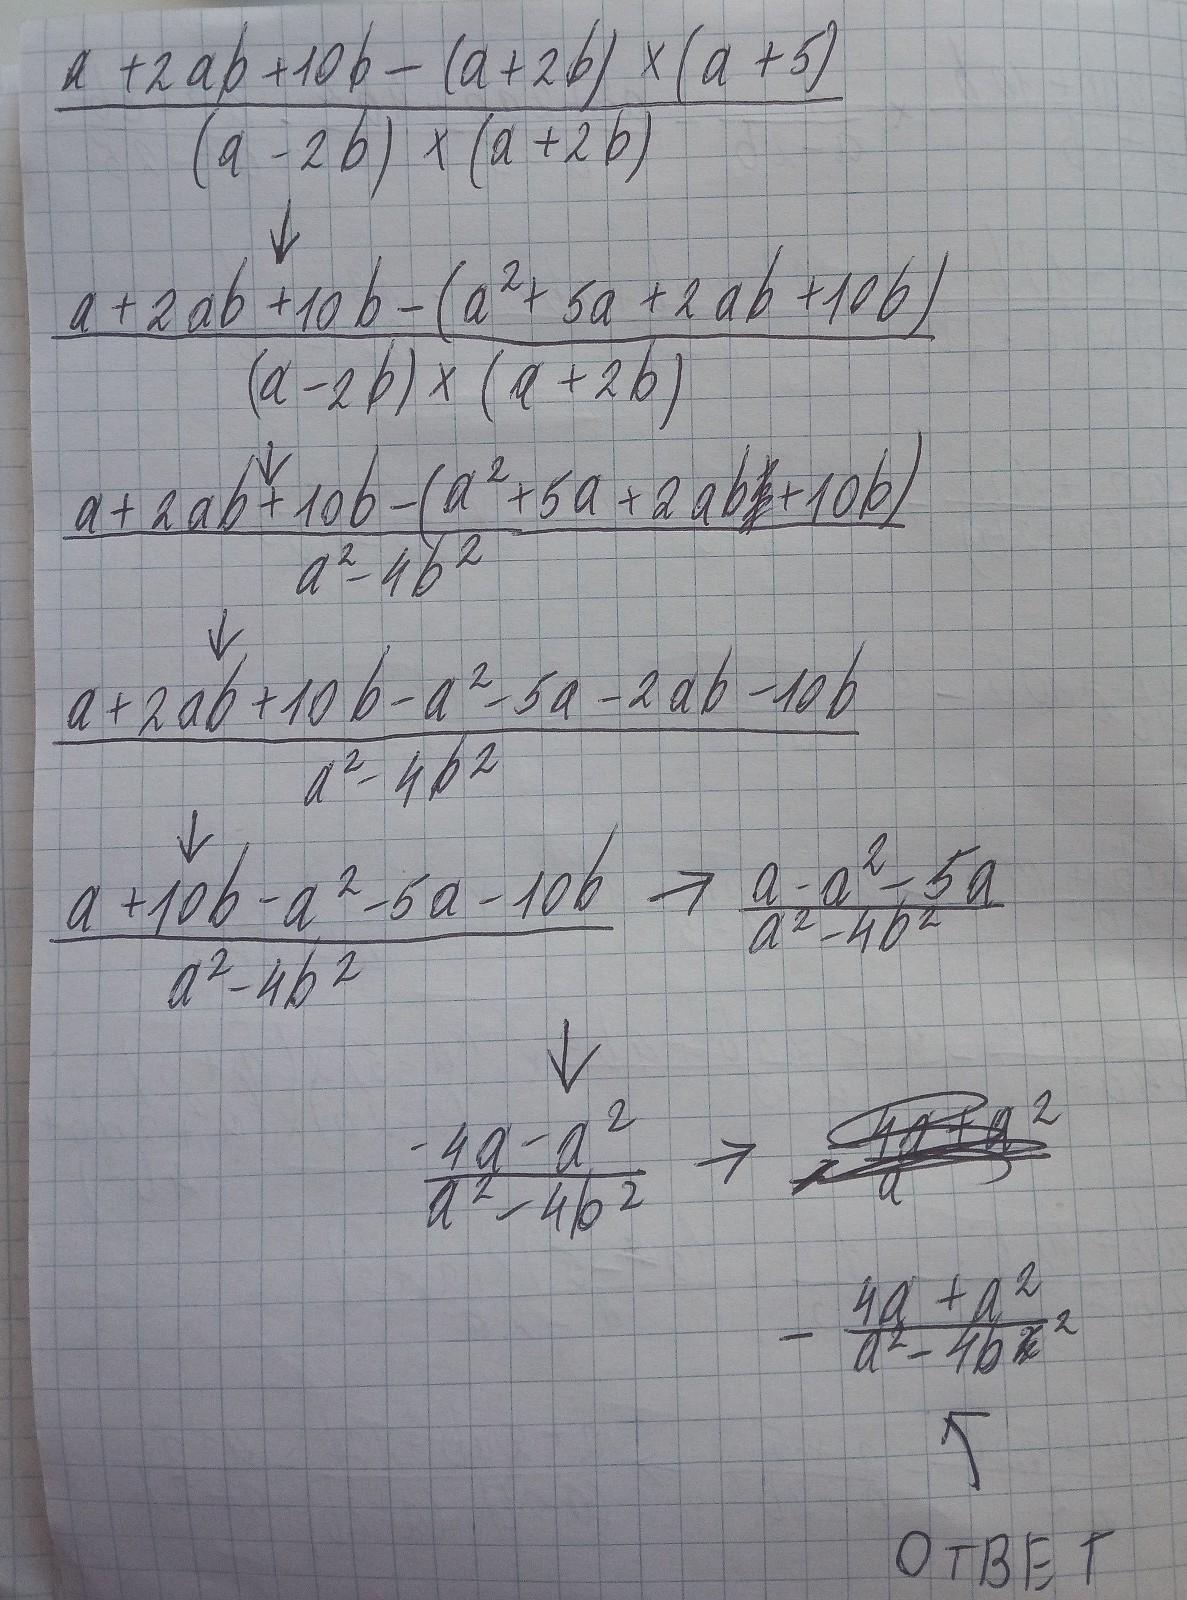 a + 2ab + 10b - (a + 2b) × (a + 5)
(a - 2b) × (a + 2b)
↓
a + 2ab + 10b - (a² + 5a + 2ab + 10b)
(a - 2b) × (a + 2b)
↓
a + 2ab + 10b - (a² + 5a + 2ab + 10b)
a² - 4b²
↓
a + 2ab + 10b - a² - 5a - 2ab - 10b
a² - 4b²
↓
a + 10b - a² - 5a - 10b → a - a² - 5a
a² - 4b² a² - 4b²
↓
-4a - a² → 4a + a²
a² - 4b² a
4a + a²
- a² - 4b²
ОТВЕТ